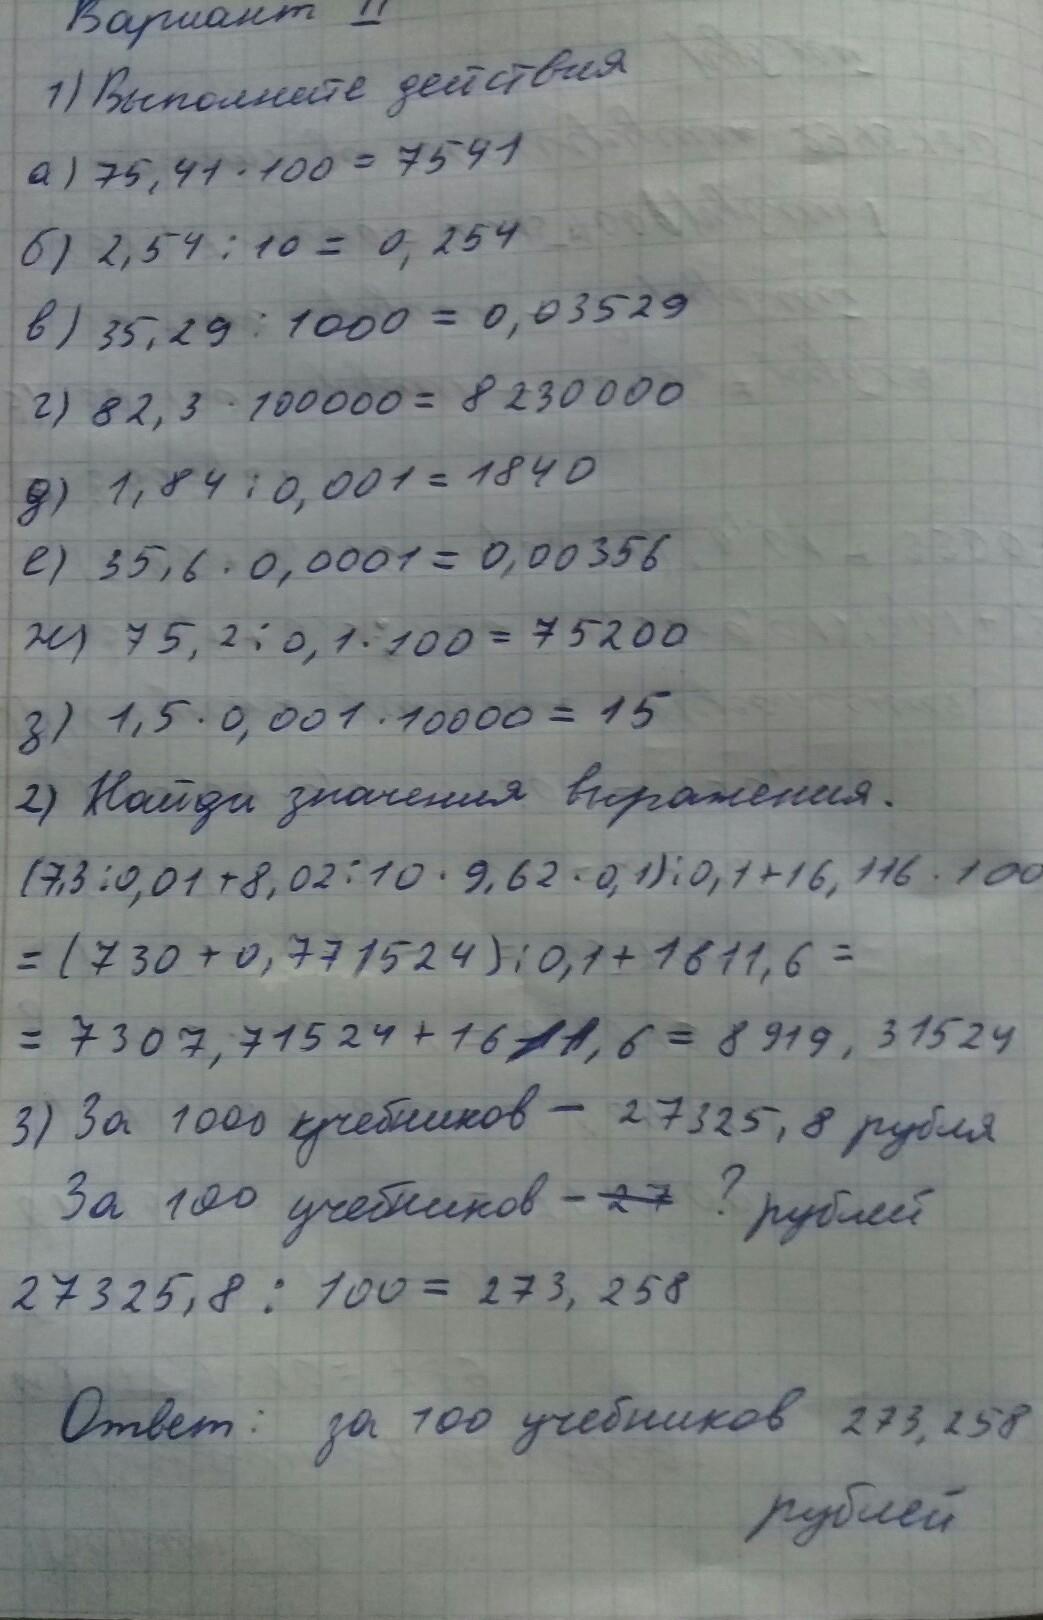 Вариант II
1) Выполните действия
а) 75,41 · 100 = 7541
б) 2,54 : 10 = 0,254
в) 35,29 : 1000 = 0,03529
г) 82,3 · 100000 = 8230000
д) 1,84 : 0,001 = 1840
е) 35,6 · 0,0001 = 0,00356
ж) 75,2 : 0,1 · 100 = 75200
з) 1,5 · 0,001 · 10000 = 15
2) Найди значения выражения.
(7,3 : 0,01 + 8,02 : 10 · 9,62 · 0,1) : 0,1 + 16,116 · 100
= (730 + 0,771524) : 0,1 + 1611,6 =
= 7307,71524 + 1611,6 = 8919,31524
3) За 1000 учебников – 27325,8 рубля
За 100 учебников – 27 ? рублей
27325,8 : 100 = 273,258
Ответ: за 100 учебников 273,258
рублей